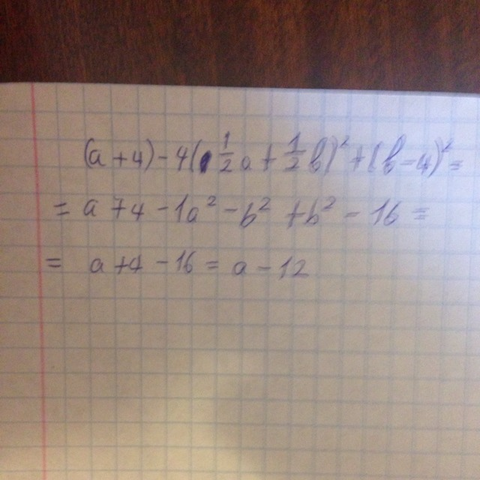 (a+4)-4(1/2a+1/2b)²+(b-4)²=
=a+4-1a²-b²+b²-16=
=a+4-16=a-12